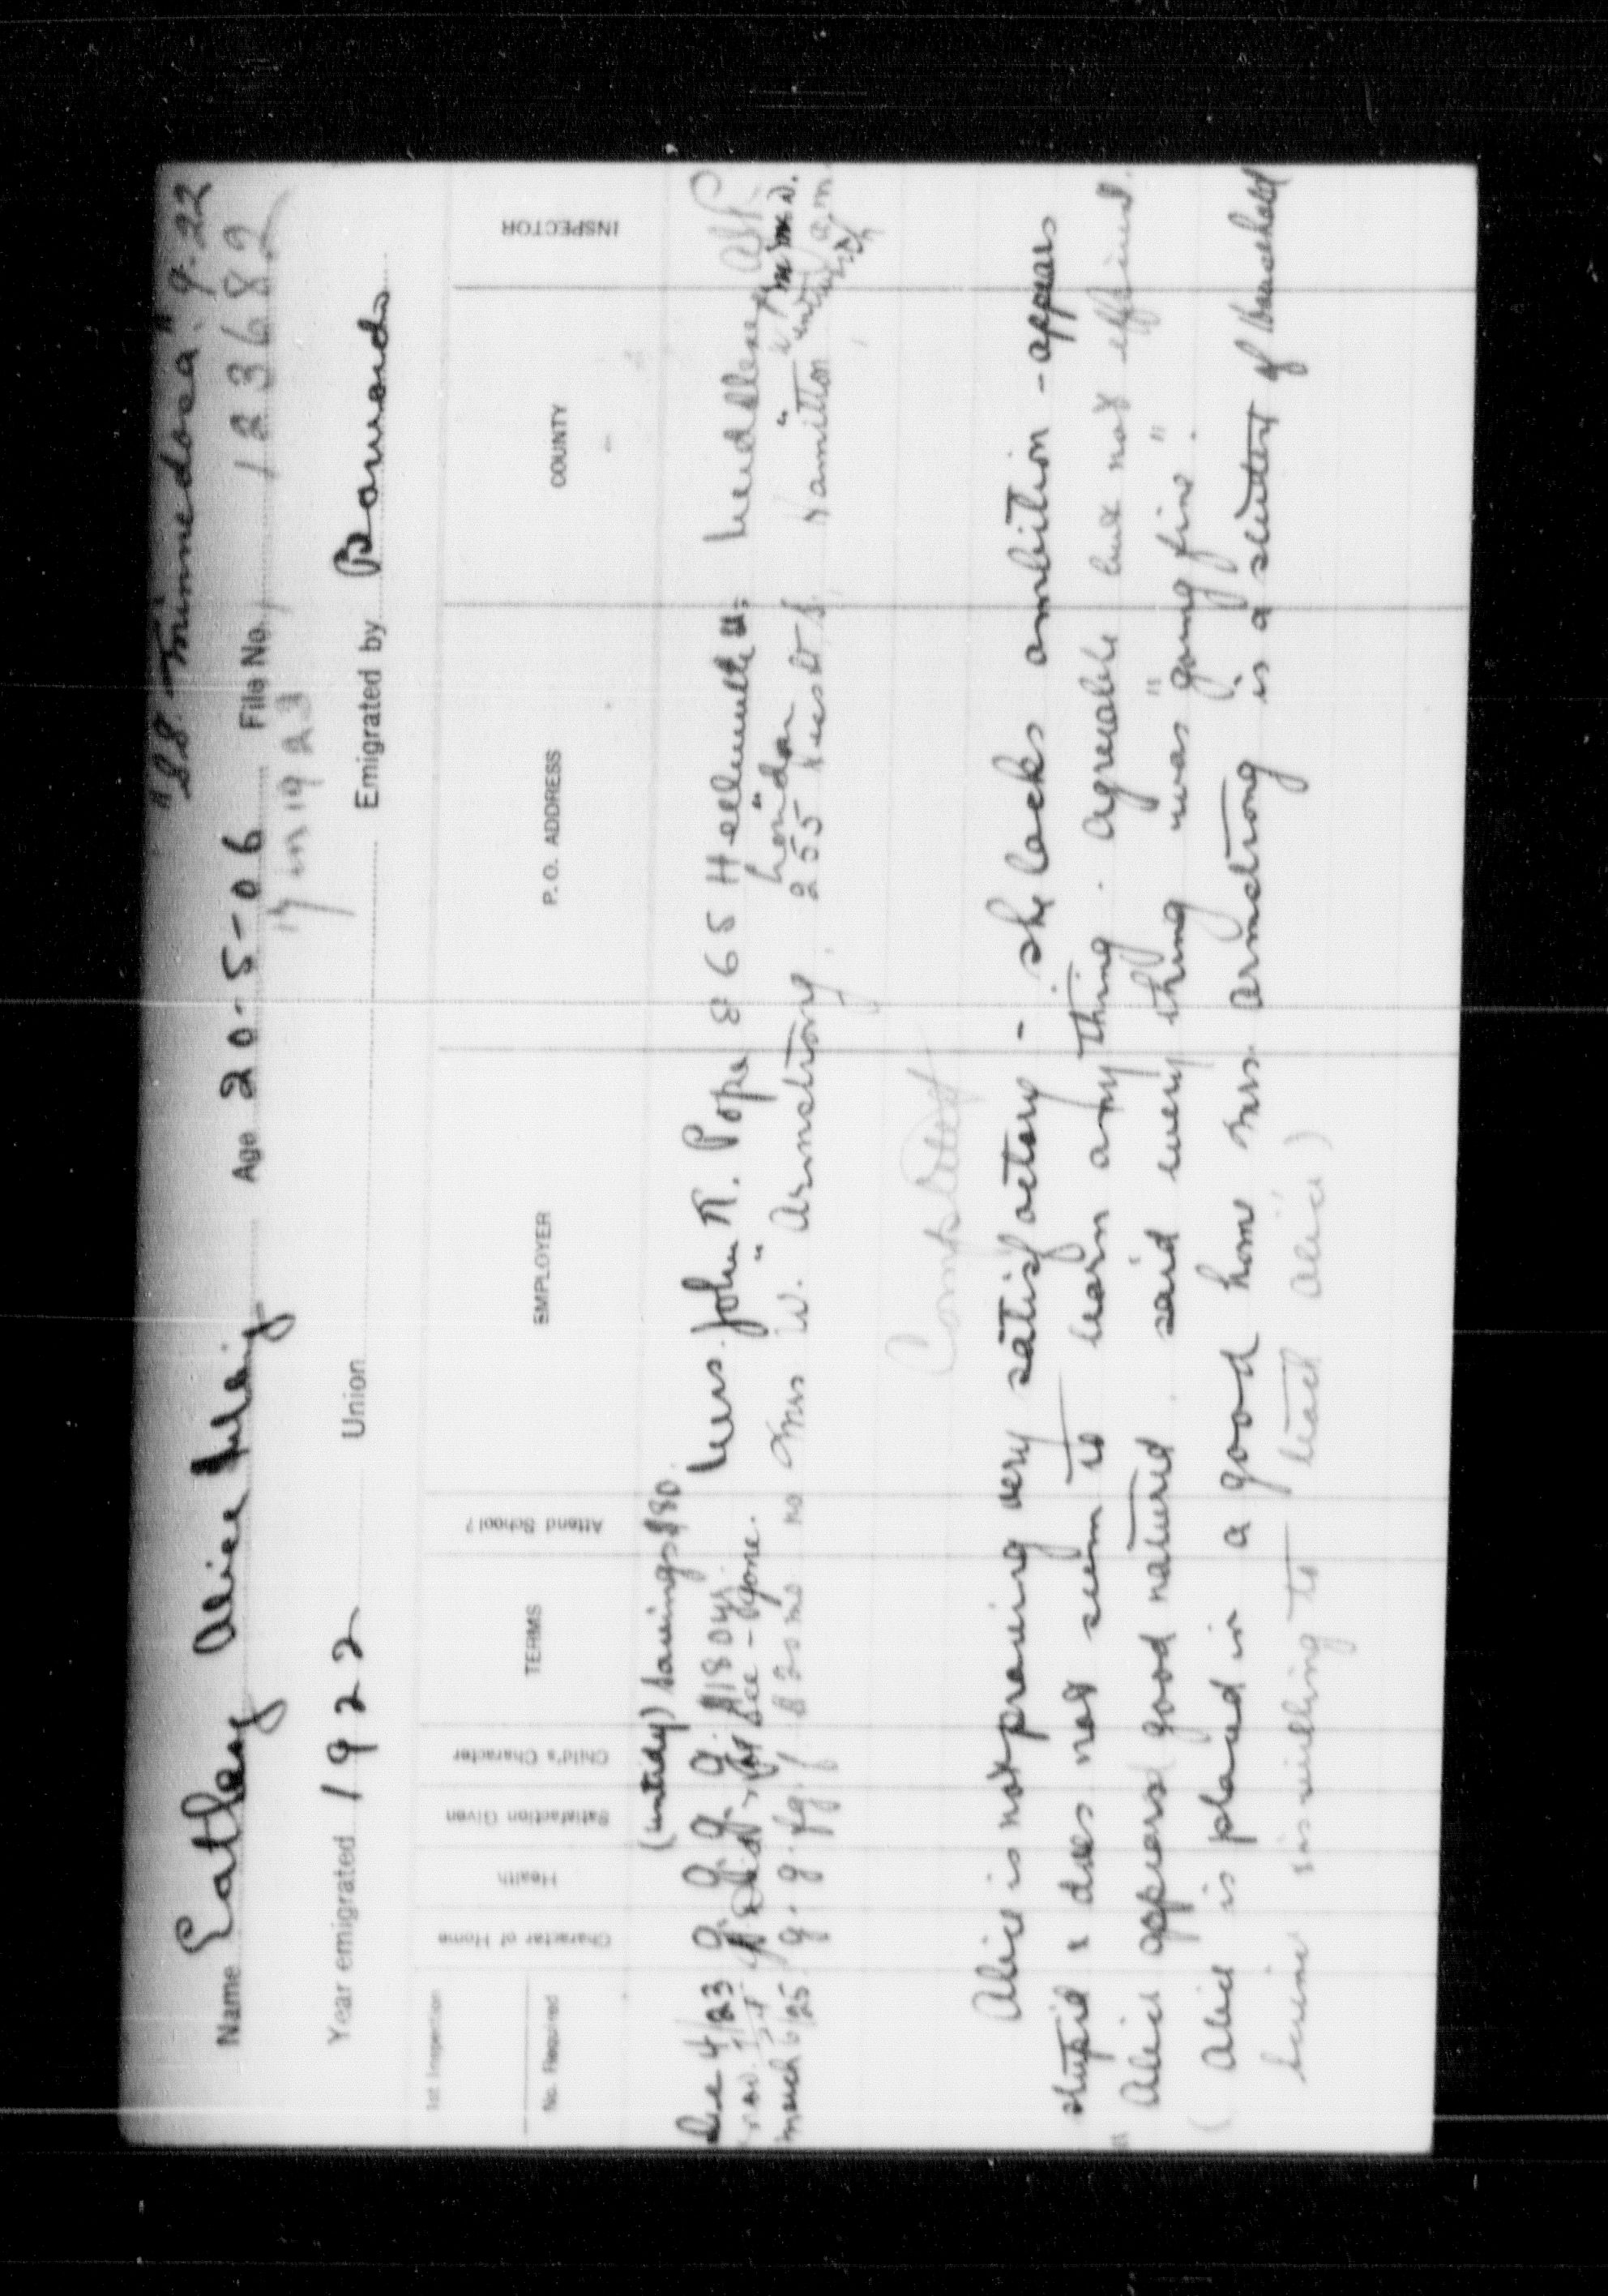 "SS Minnedosa" 9.22
Name Eatley Alice Age 20-5-06 File No. 123682
17 in 1923
Year emigrated 1922 Union Emigrated by Barnardo
1st Inspection
No. Required Character of Home Health Satisfaction Given Child's Character TERMS Attend School? EMPLOYER P. O. ADDRESS COUNTY INSPECTOR
(untidy) Savings $80.
Dec 4/23 g. g. g. g. $180 yr. Mrs. John R. Pope 865 Hellmuth Middlesex
Nov. See - gone. " London "
March 6/25 g. g. fg. f $20 mo no Mrs W. Armstrong 255 Hess St S. Hamilton
Completed
Alice is not proving very satisfactory - she lacks ambition - appears
stupid & does not seem to learn any thing. Agreeable but not efficient.
" Alice appears good natured. said every thing was "going fine".
( Alice is placed in a good home Mrs. Armstrong is a student of Household
Science & is willing to teach Alice)